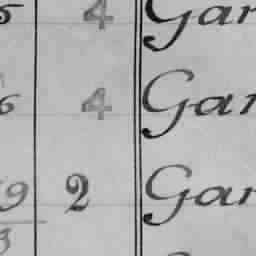 5 4 Gar
6 4 Gar
9 2 Gar
3